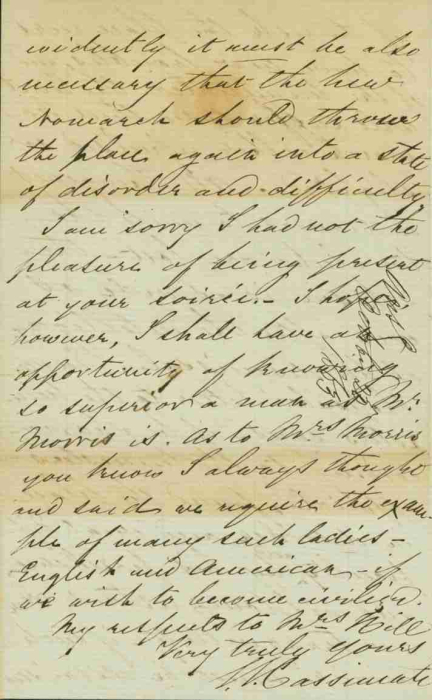 evidently it must be also
necessary that the new
Nomarch should throw
the place again into a state
of disorder and difficulty.
I am sorry I had not the
pleasure of being present
at your soirée. - I hope,
however, I shall have an
opportunity of knowing
so superior a man as Mr.
Morris is. As to Mrs Morris
you know I always thought
and said we require the exam-
ple of many such ladies -
English and American - if
we wish to become civilized.
My respects to Mrs Hill
Very truly yours